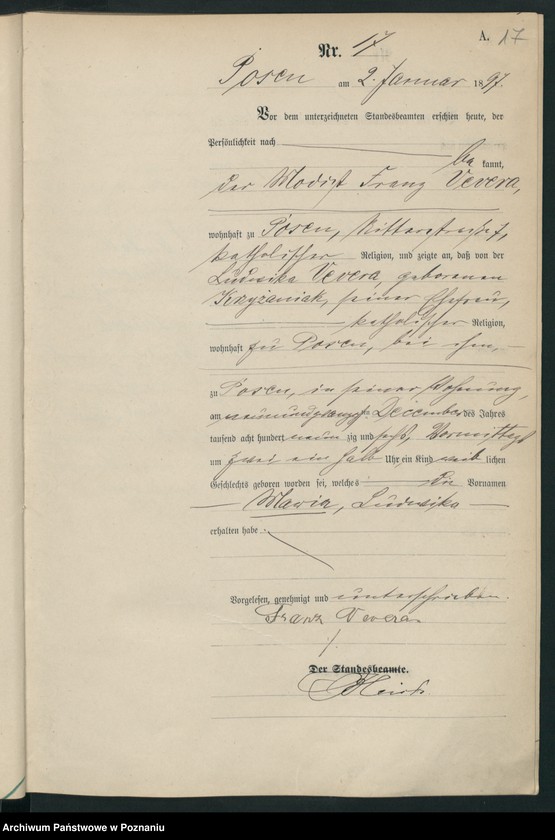 A. 17
Nr. 17
Posen am 2. Januar 1897.
Vor dem unterzeichneten Standesbeamten erschien heute, der
Persönlichkeit nach
be kannt,
der Modist Franz Vevera,
wohnhaft zu Posen, Ritterstraße
katholischer Religion, und zeigte an, daß von der
Ludwika Vevera geborenen
Krzyżaniak, seiner Ehefrau,
katholischer Religion,
wohnhaft zu Posen, bei ihm,
zu Posen, in seiner Wohnung,
am neunundzwanzigsten December des Jahres
tausend acht hundert neun zig und sechs, Vormittags
um zwei ein halb Uhr ein Kind weib lichen
Geschlechts geboren worden sei, welches die Vornamen
Maria, Ludwika
erhalten habe.
Vorgelesen, genehmigt und unterschrieben.
Franz Vevera
Der Standesbeamte.
Archiwum Państwowe w Poznaniu